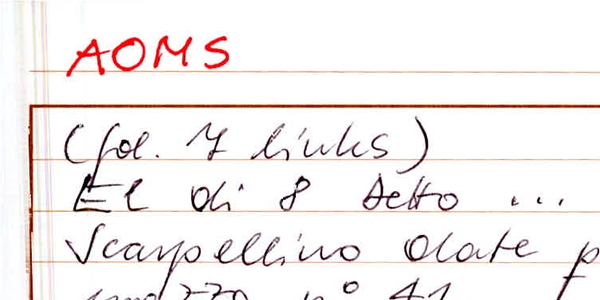 AOMS
(fol. 7 links)
El di 8 detto ...
Scarpellino date p
n° 41